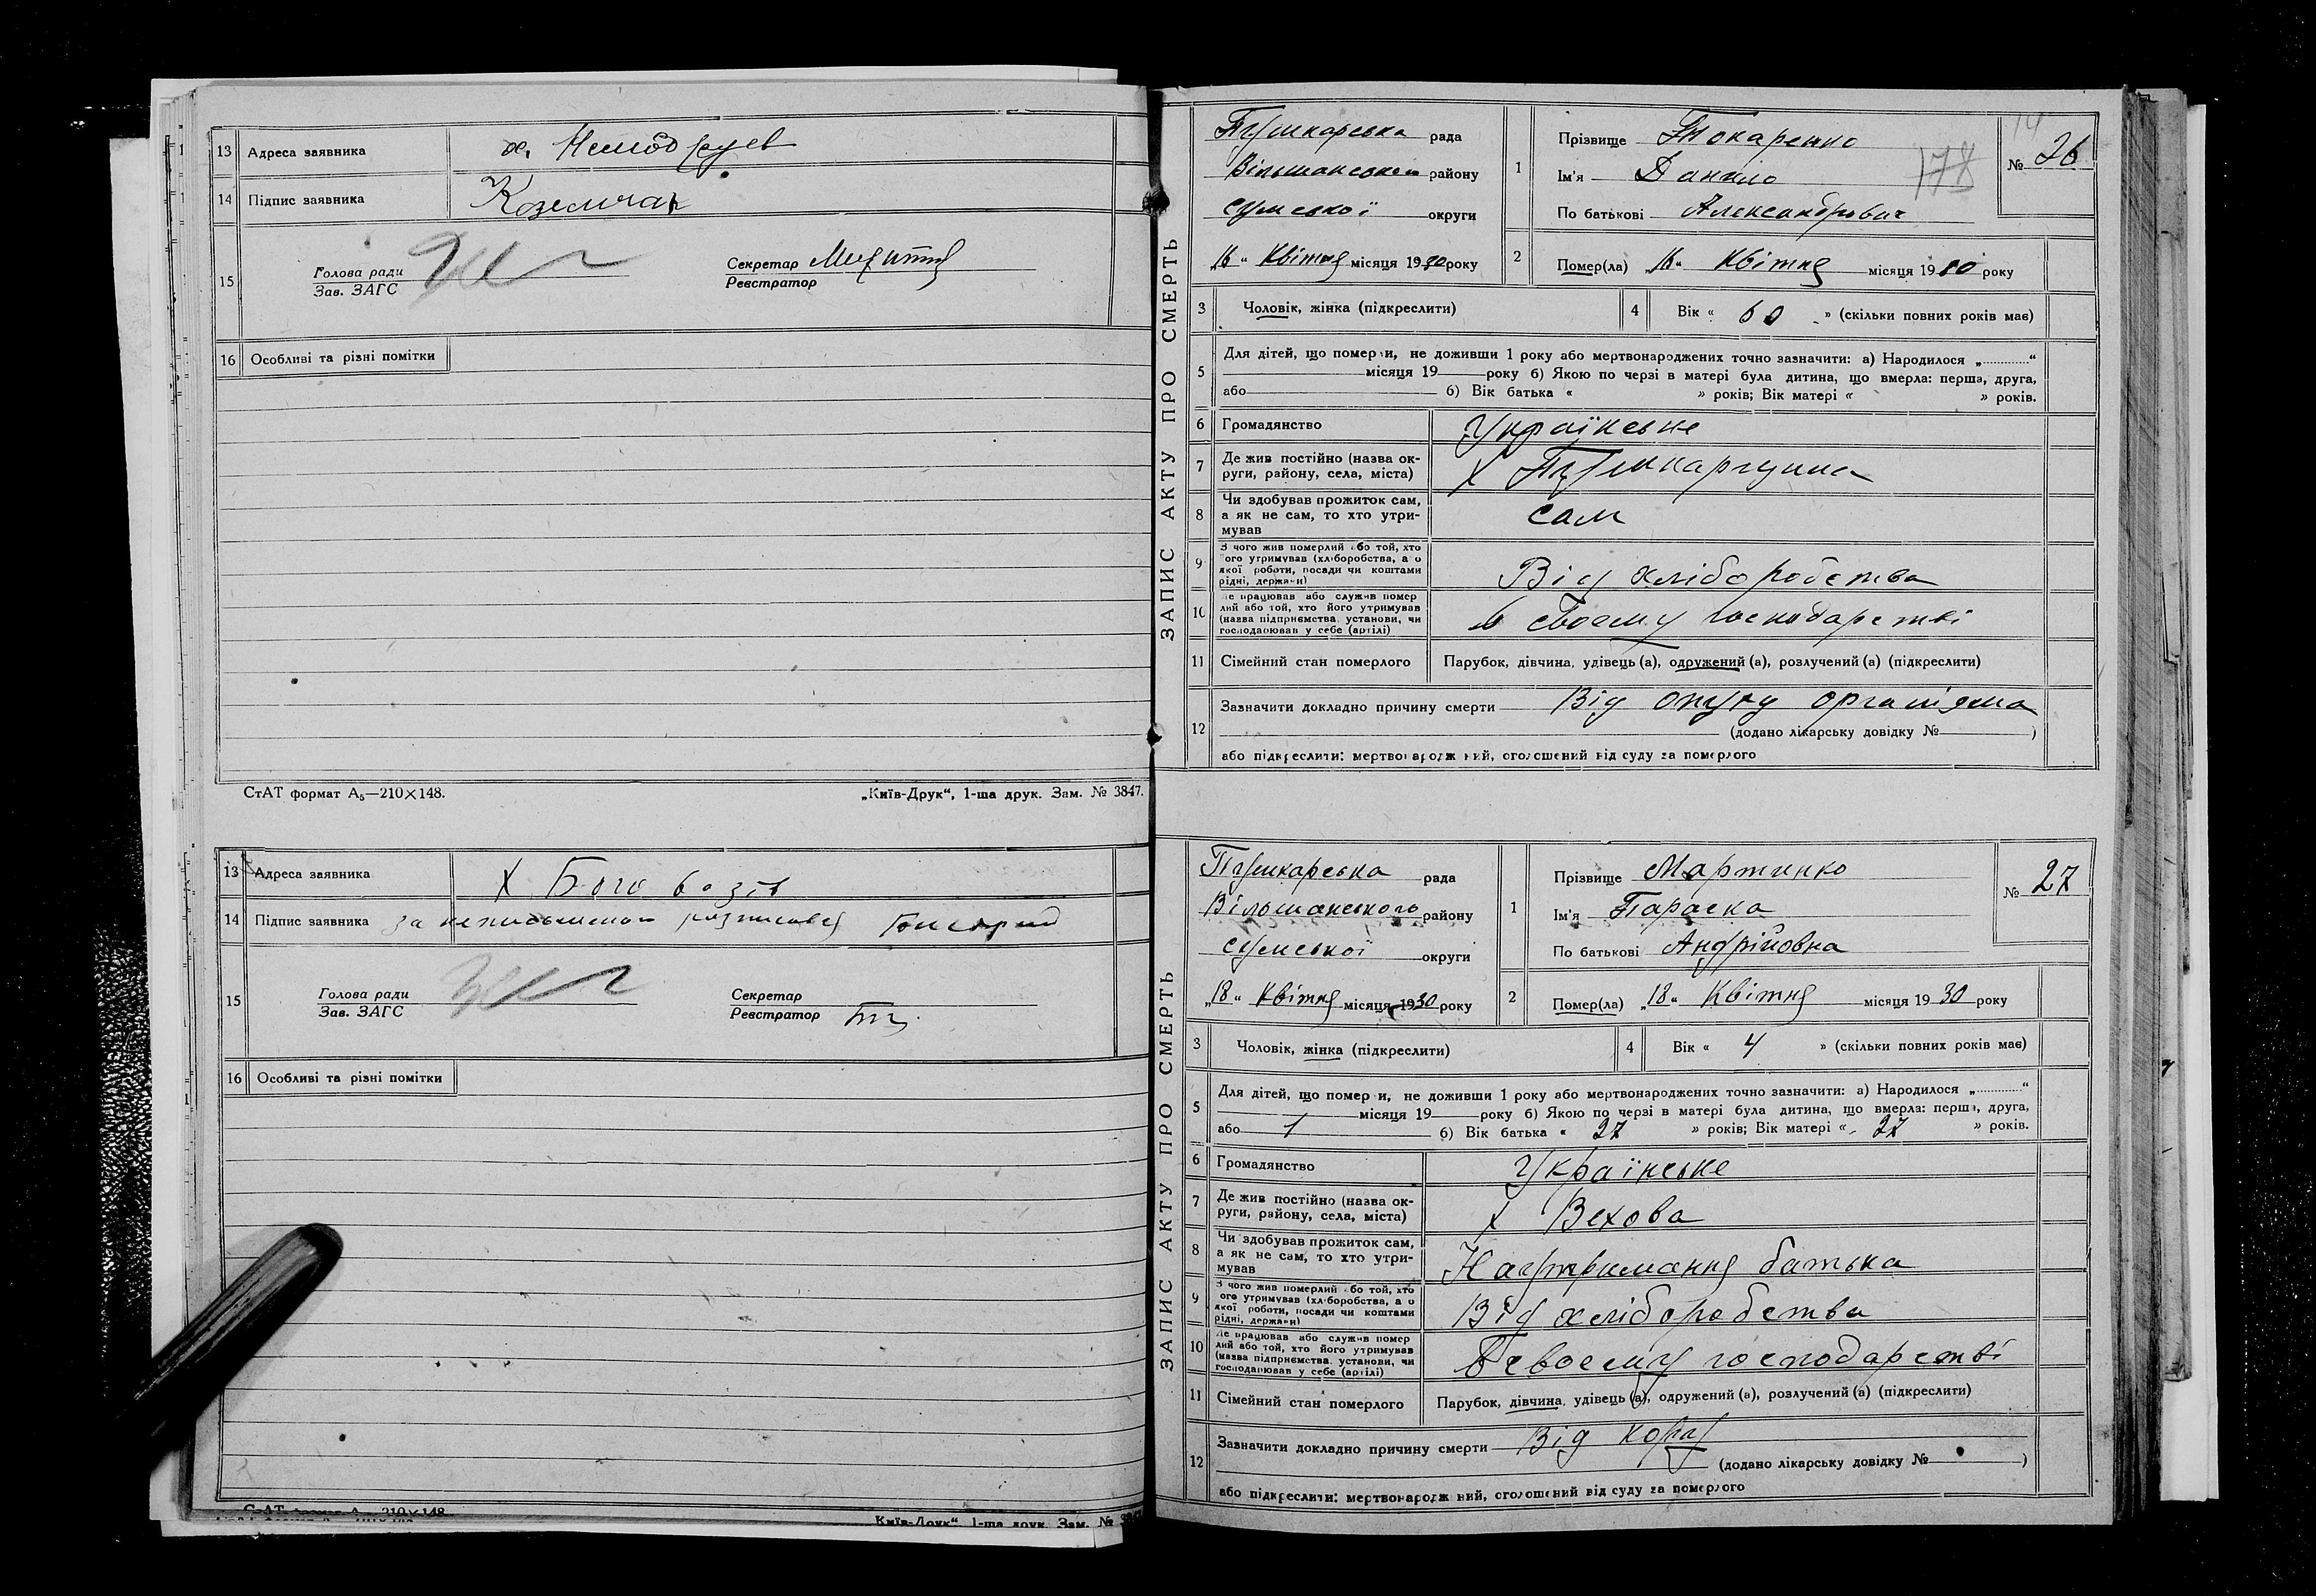 13 Адреса заявника х.
14 Підпис заявника
15 Голова ради
Зав. ЗАГС
Секретар
Реєстратор
16 Особливі та різні помітки
СтАТ формат А₅—210×148. „Київ-Друк“, 1-ша друк. Зам. № 3847.
13 Адреса заявника х
14 Підпис заявника за
15 Голова ради
Зав. ЗАГС
Секретар
Реєстратор
16 Особливі та різні помітки
СтАТ формат А₅—210×148.
Київ-Друк“, 1-ша друк. Зам. № 3847
ЗАПИС АКТУ ПРО СМЕРТЬ
Пушкарська рада
Вільшанськой району
сумської округи
„16“ Квітня місяця 1930 року
1 Прізвище Токаренко
Ім'я Данило
По батькові Александрович
178
№ 26
2 Помер(ла) „16“ Квітня місяця 1930 року
3 Чоловік, жінка (підкреслити)
4 Вік « 60 » (скільки повних років має)
5 Для дітей, що померли, не доживши 1 року або мертвонароджених точно зазначити: а) Народилося „............“
місяця 19 року б) Якою по черзі в матері була дитина, що вмерла: перша, друга,
або 6) Вік батька « » років; Вік матері « » років.
6 Громадянство Українське
7 Де жив постійно (назва округи, району, села, міста) х
8 Чи здобував прожиток сам, а як не сам, то хто утримував сам
9 З чого жив померлий або той, хто його утримував (хліборобства, а о якої роботи, посади чи коштами рідні, держави) Від хліборобства
10 Де працював або служив померлий або той, хто його утримував (назва підприємства, установи, чи господарював у себе (артілі) в своєму господарстві
11 Сімейний стан померлого Парубок, дівчина, удівець (а), одружений (а), розлучений (а) (підкреслити)
12 Зазначити докладно причину смерти Від опуху организма
(додано лікарську довідку № )
або підкреслити: мертвонароджений, оголошений від суду за померлого
ЗАПИС АКТУ ПРО СМЕРТЬ
Пушкарська рада
Вільшанського району
сумської округи
„18“ Квітня місяця 1930 року
1 Прізвище Мартинко
Ім'я Параска
По батькові Андрійовна
№ 27
2 Помер(ла) „18“ Квітня місяця 1930 року
3 Чоловік, жінка (підкреслити)
4 Вік « 4 » (скільки повних років має)
5 Для дітей, що померли, не доживши 1 року або мертвонароджених точно зазначити: а) Народилося „............“
місяця 19 року б) Якою по черзі в матері була дитина, що вмерла: перша, друга,
або 1 6) Вік батька « 27 » років; Вік матері « 27 » років.
6 Громадянство Українське
7 Де жив постійно (назва округи, району, села, міста) х Вехова
8 Чи здобував прожиток сам, а як не сам, то хто утримував На утримання батька
9 З чого жив померлий або той, хто його утримував (хліборобства, а о якої роботи, посади чи коштами рідні, держави) Від хліборобства
10 Де працював або служив померлий або той, хто його утримував (назва підприємства, установи, чи господарював у себе (артілі) В своєму господарстві
11 Сімейний стан померлого Парубок, дівчина, удівець (а), одружений (а), розлучений (а) (підкреслити)
12 Зазначити докладно причину смерти Від кору
(додано лікарську довідку № )
або підкреслити: мертвонароджений, оголошений від суду за померлого